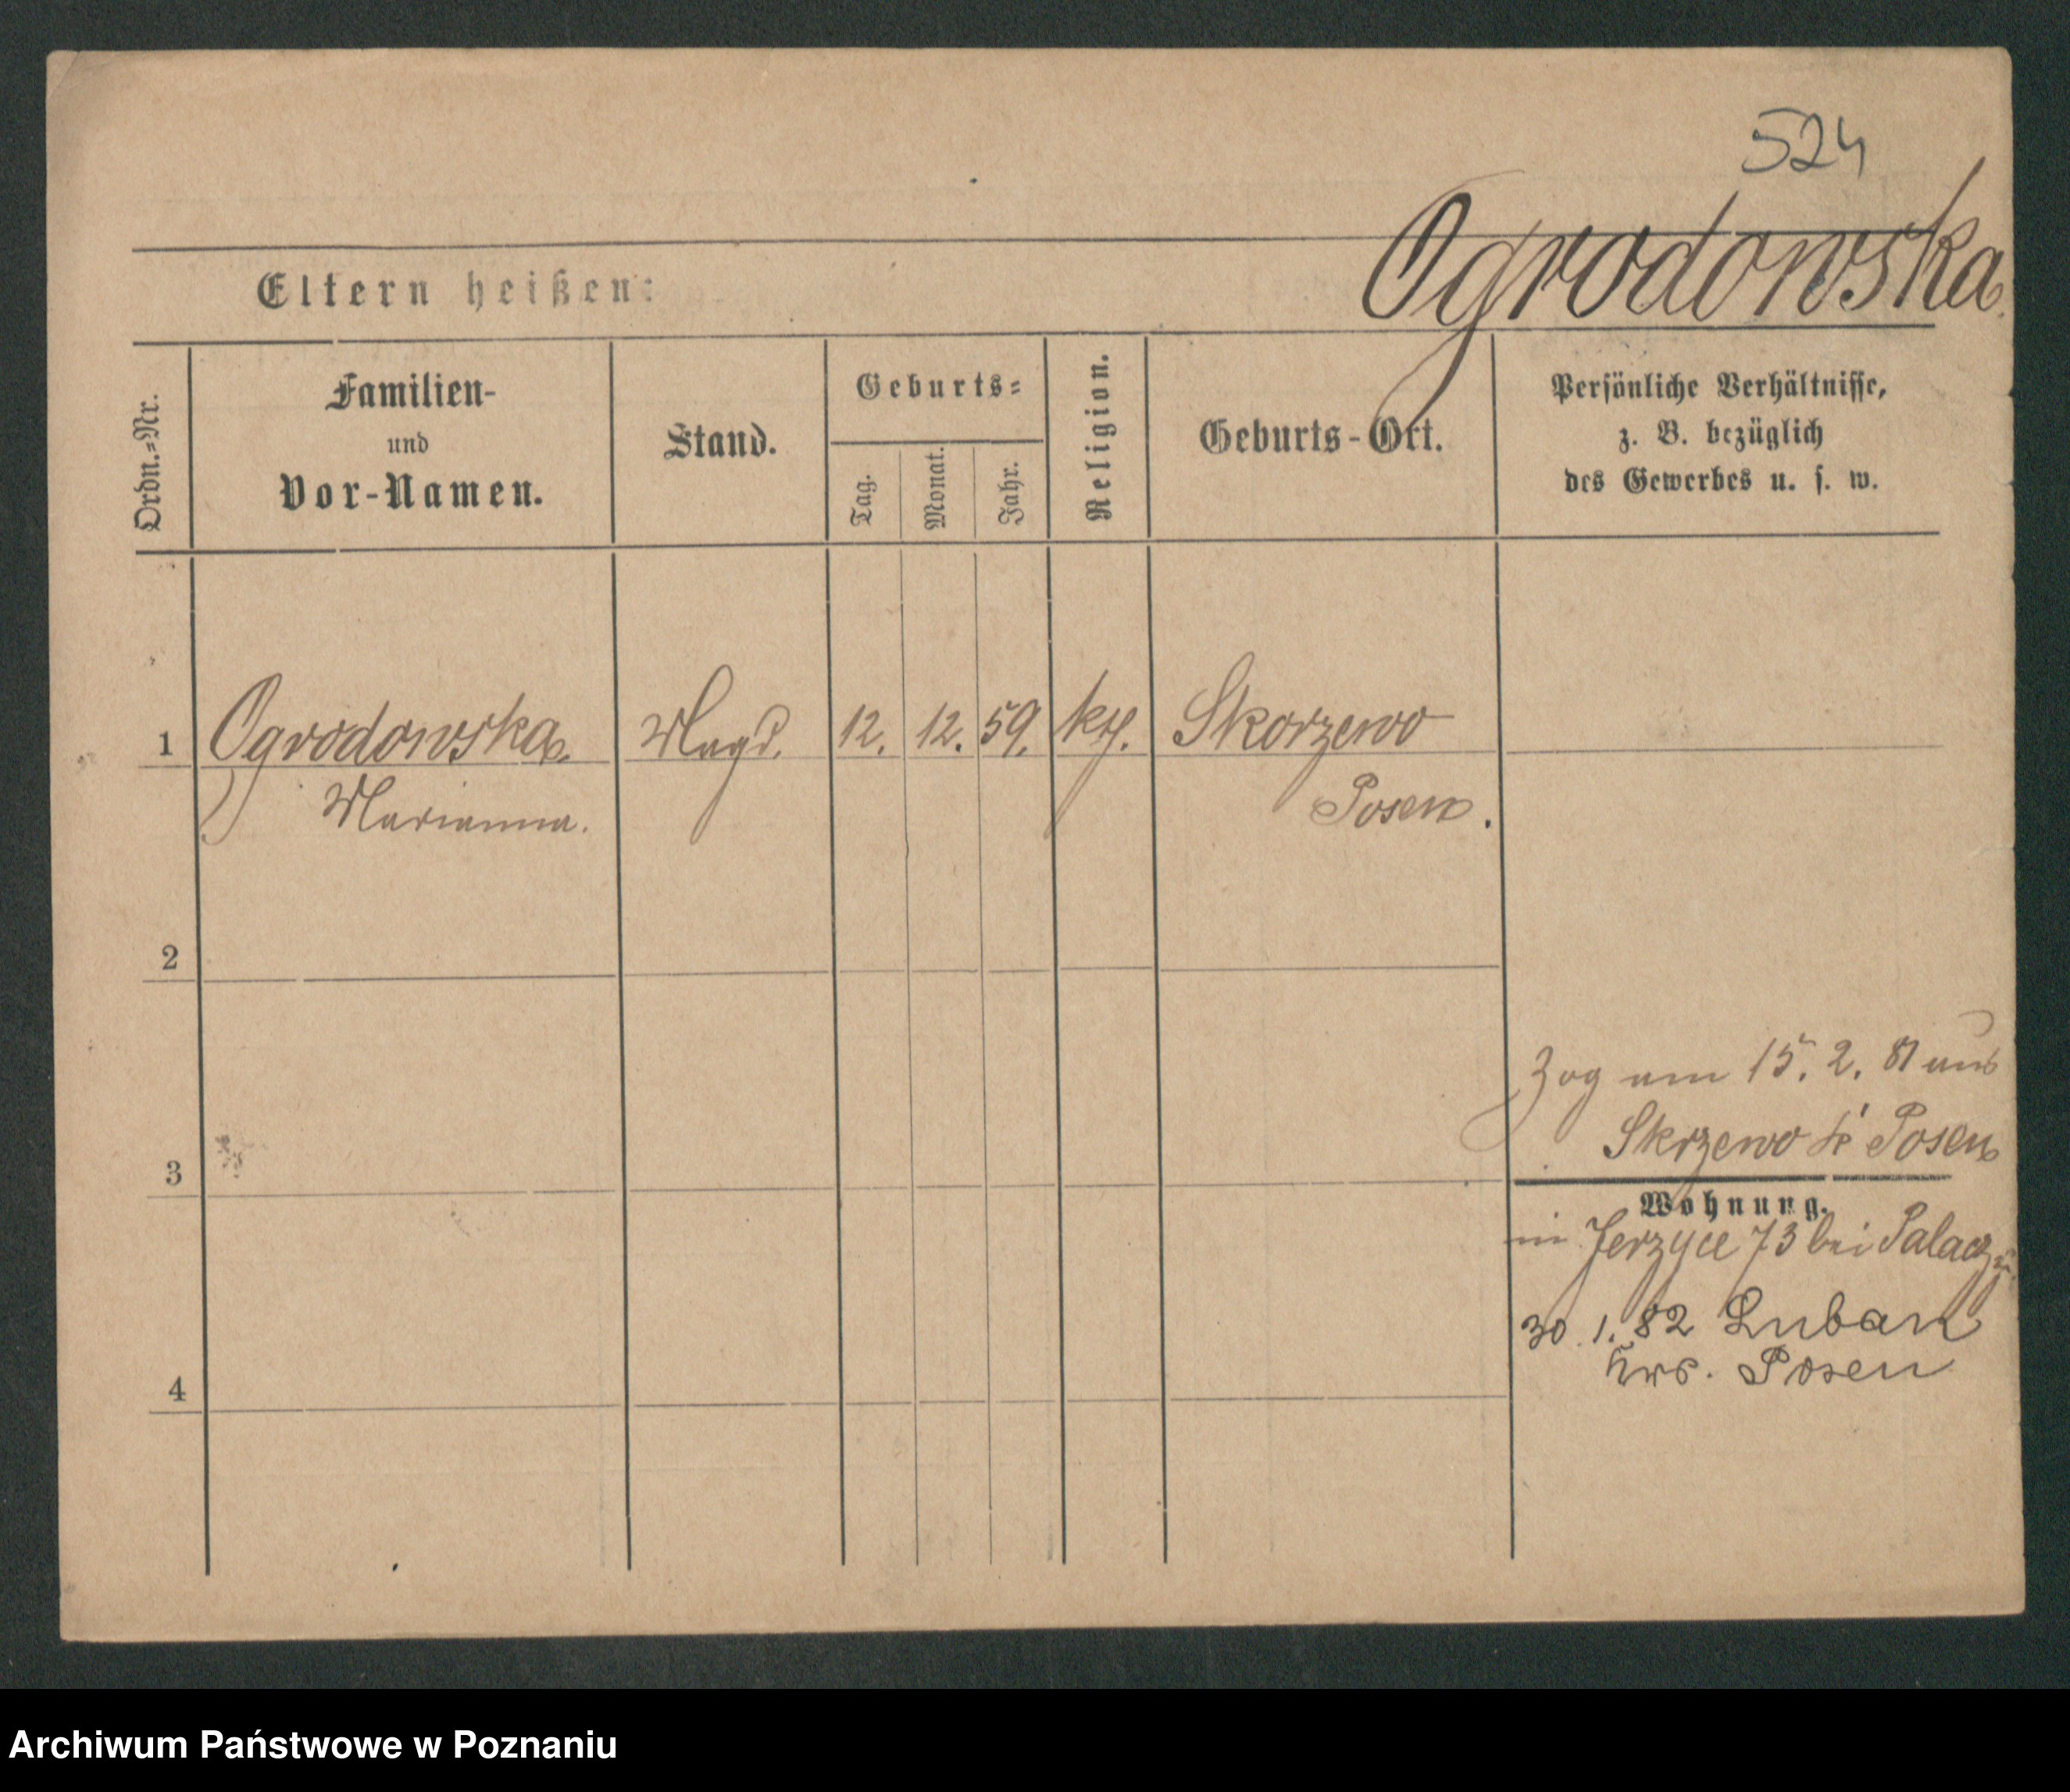 524
Ogrodowska
Eltern heißen:
Ordn.=Nr.
Familien-
und
Vor-Namen.
Stand.
Geburts=
Tag.
Monat.
Jahr.
Religion.
Geburts-Ort.
Persönliche Verhältnisse,
z. B. bezüglich
des Gewerbes u. s. w.
1 Ogrodowska Magd. 12. 12. 59. kth. Skorzewo
Marianna. Posen.
2
Zog am 15. 2. 81 aus
Skrzewo Posen
3
Wohnung.
in Jerzyce 73 bei
30. 1. 82 Luban
Krs. Posen
4
Archiwum Państwowe w Poznaniu